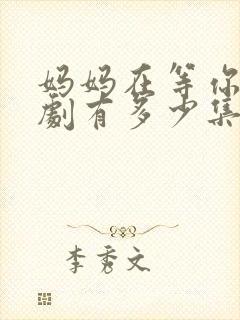 妈妈在等你
劇有多少集
李秀文